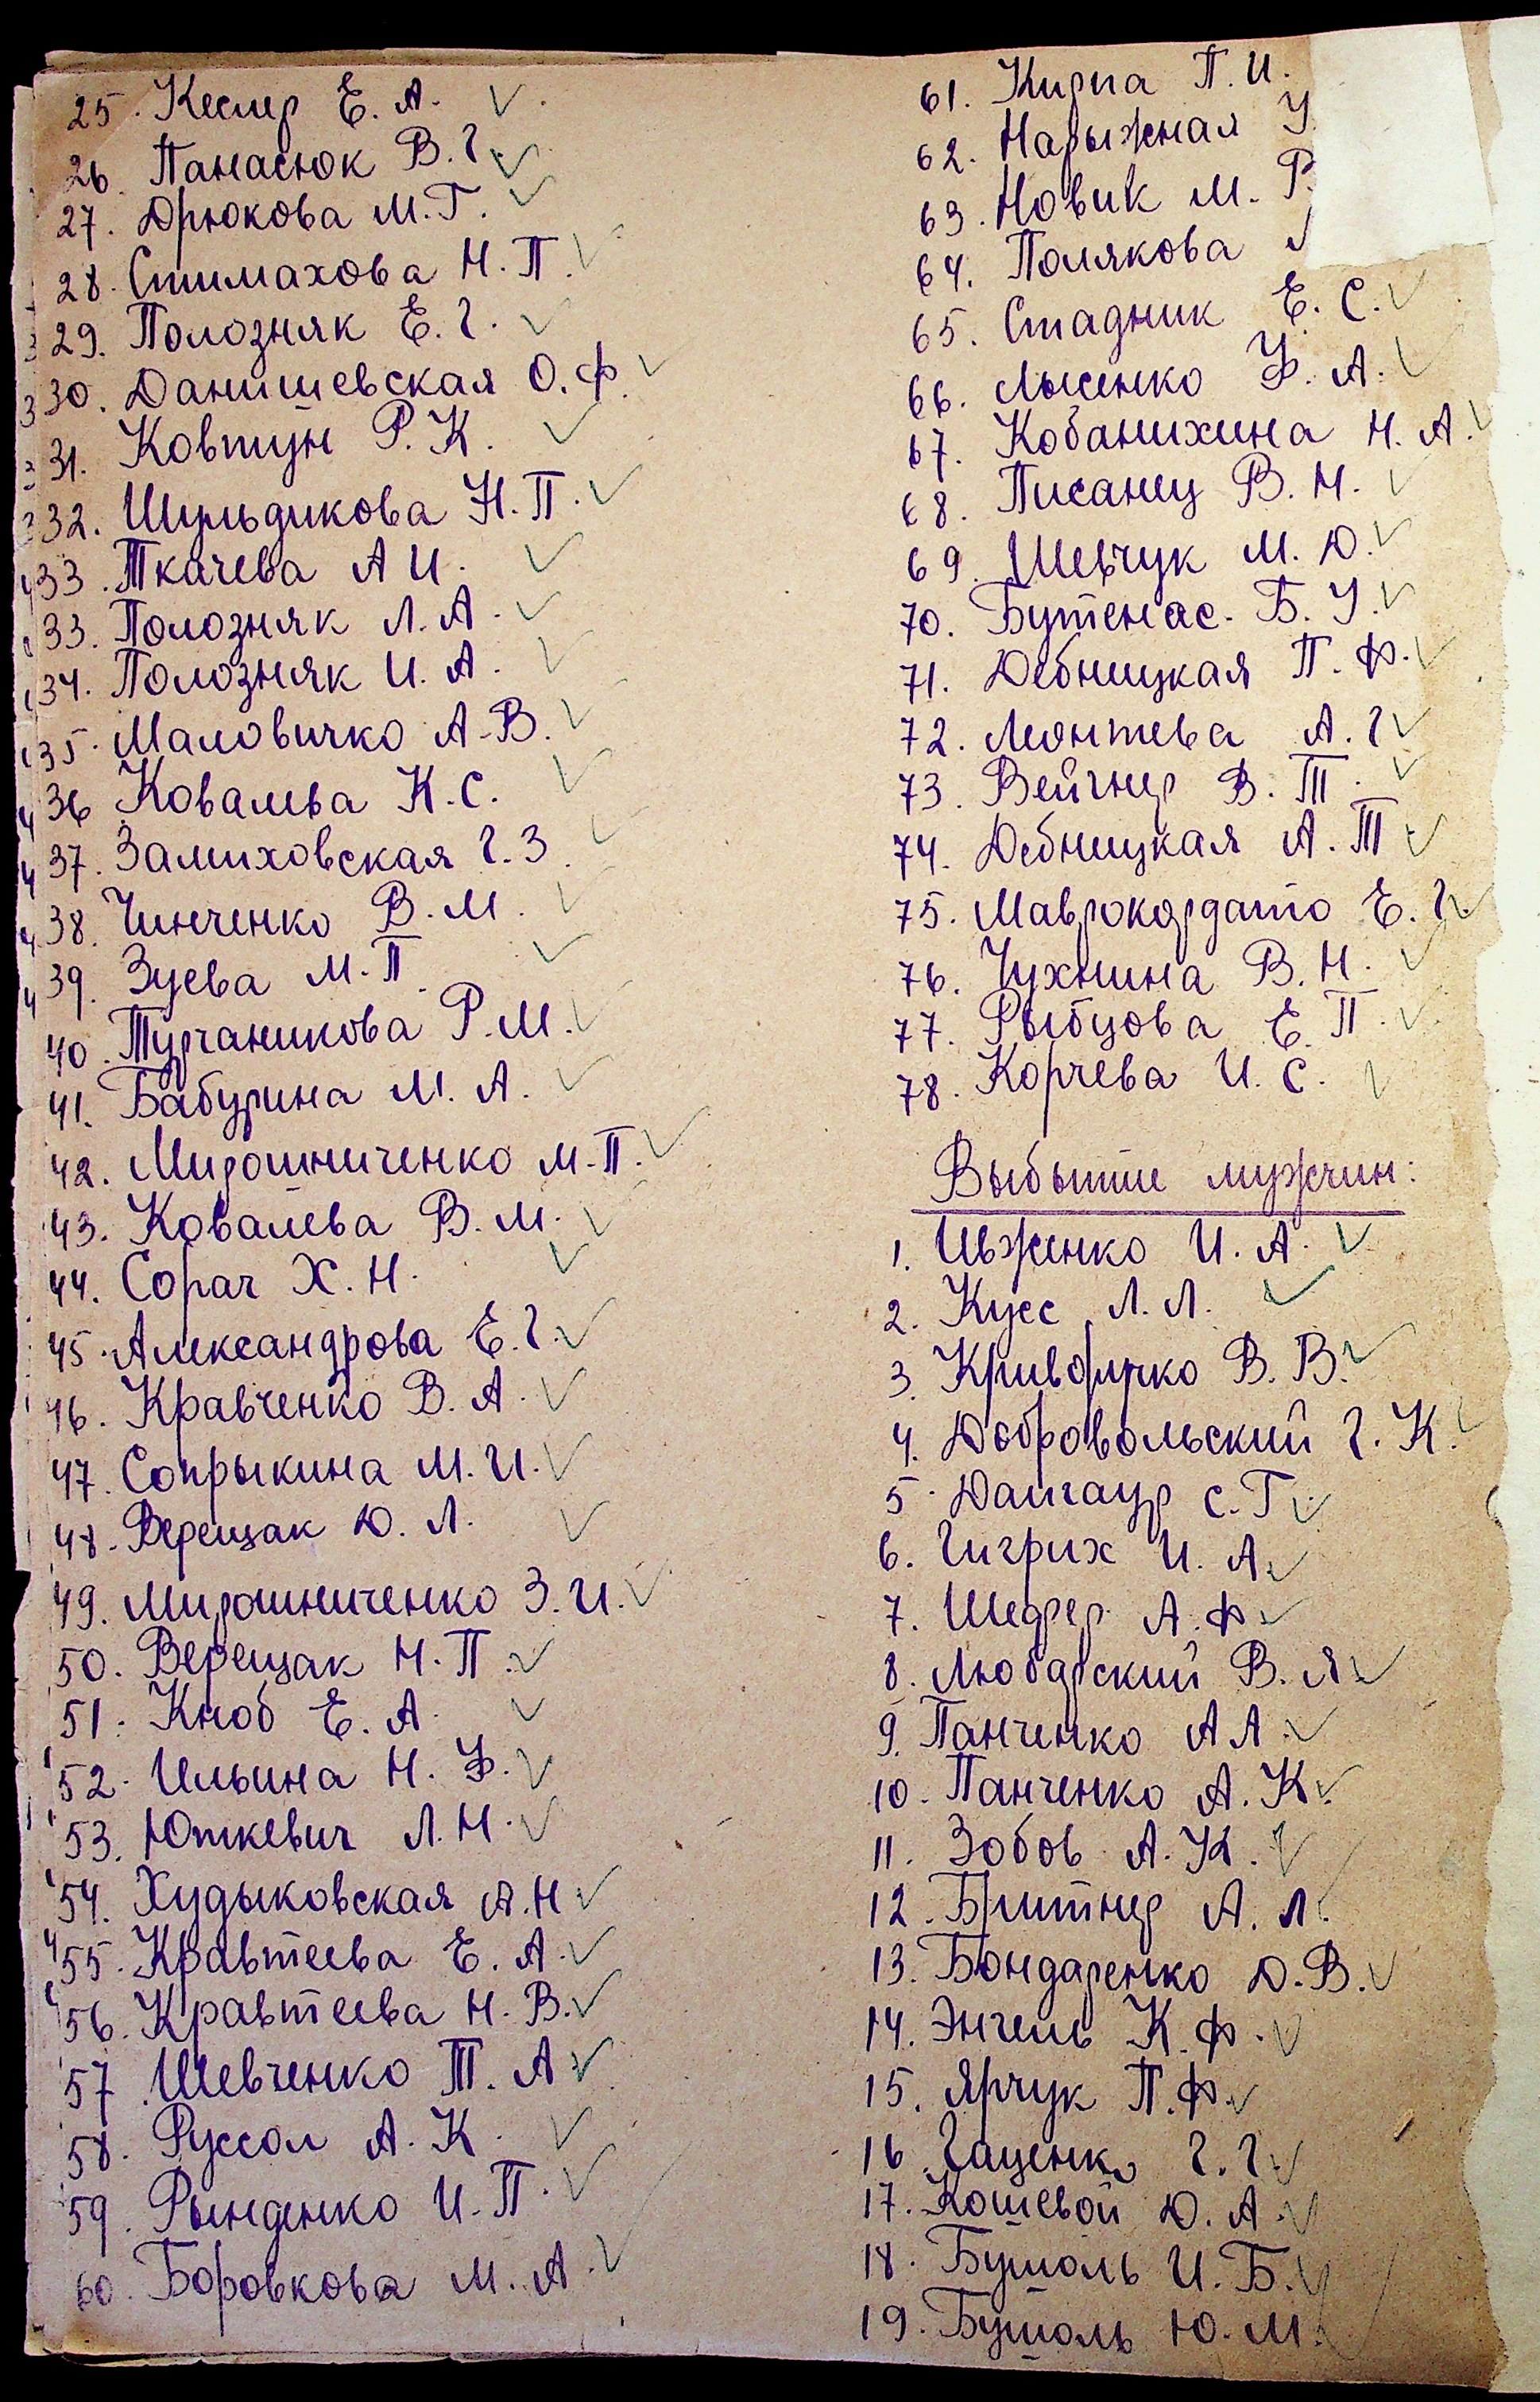 25. Кеслер Е. А.
26. Панасюк В. Г.
27. Дрюкова М. Г.
28. Стимахова Н. П.
29. Полозняк Е. Г.
30. Данишевская О. Ф.
31. Ковтун Р. К.
32. Шульдикова Н. П.
33. Ткачева А И.
33. Полозняк Л. А.
34. Полозняк И. А.
35. Маловичко А. В.
36 Ковалева К. С.
37. Замиховская Г. З.
38. Чинченко В. М.
39. Зуева М. П.
40. Турчаникова Р. М.
41. Бабурина М. А.
42. Мирошниченко М. П.
43. Ковалева В. М.
44. Сорач Х. Н.
45. Александрова Е. Г.
46. Кравченко В. А.
47. Сопрыкина М. И.
48. Верещак Д. Л.
49. Мирошниченко З. И.
50. Верещак Н. П.
51. Кноб Е. А.
52. Ильина Н. Ф.
53. Юткевич Л. Н.
54. Худыковская А. Н
55. Кравтеева Е. А.
56. Кравтеева Н. В.
57. Шевченко Т. А
58. Руссол А. К.
59. Рынденко И. П.
60. Боровкова М. А.
61. Кирпа П. И.
62. Нарыжная У
63. Новик М. Р.
64. Полякова
65. Стадник Е. С.
66. Лысенко Ф. А.
67. Кобанихина Н. А.
68. Писанец В. Н.
69. Шевчук М. Д.
70. Бутенас. Б. У.
71. Дебницкая П. Ф.
72. Леонтева А. Г.
73. Вейгнер В. Т.
74. Дебницкая А. Т.
75. Маврокордато Е. Г.
76. Чухнина В. Н.
77. Рыбцова Е. П.
78. Корчева И. С.
Выбытие мужчин:
1. Ивженко И. А.
2. Кусс Л. Л.
3. Кривфирко В. В.
4. Добровольский Г. К.
5. Дамгаур С. Г.
6. Гигрих И. А.
7. Шефер А. Ф.
8. Любарский В. Я.
9. Панченко А Л.
10. Панченко А. К.
11. Зобов А. К.
12. Бритнер А. Л.
13. Бондаренко Д. В.
14. Энгель К. Ф.
15. Ярчук П. Ф.
16. Гаценко Г. Г.
17. Кошевой Д. А.
18. Бушоль И. Б.
19. Бушоль Ю. М.